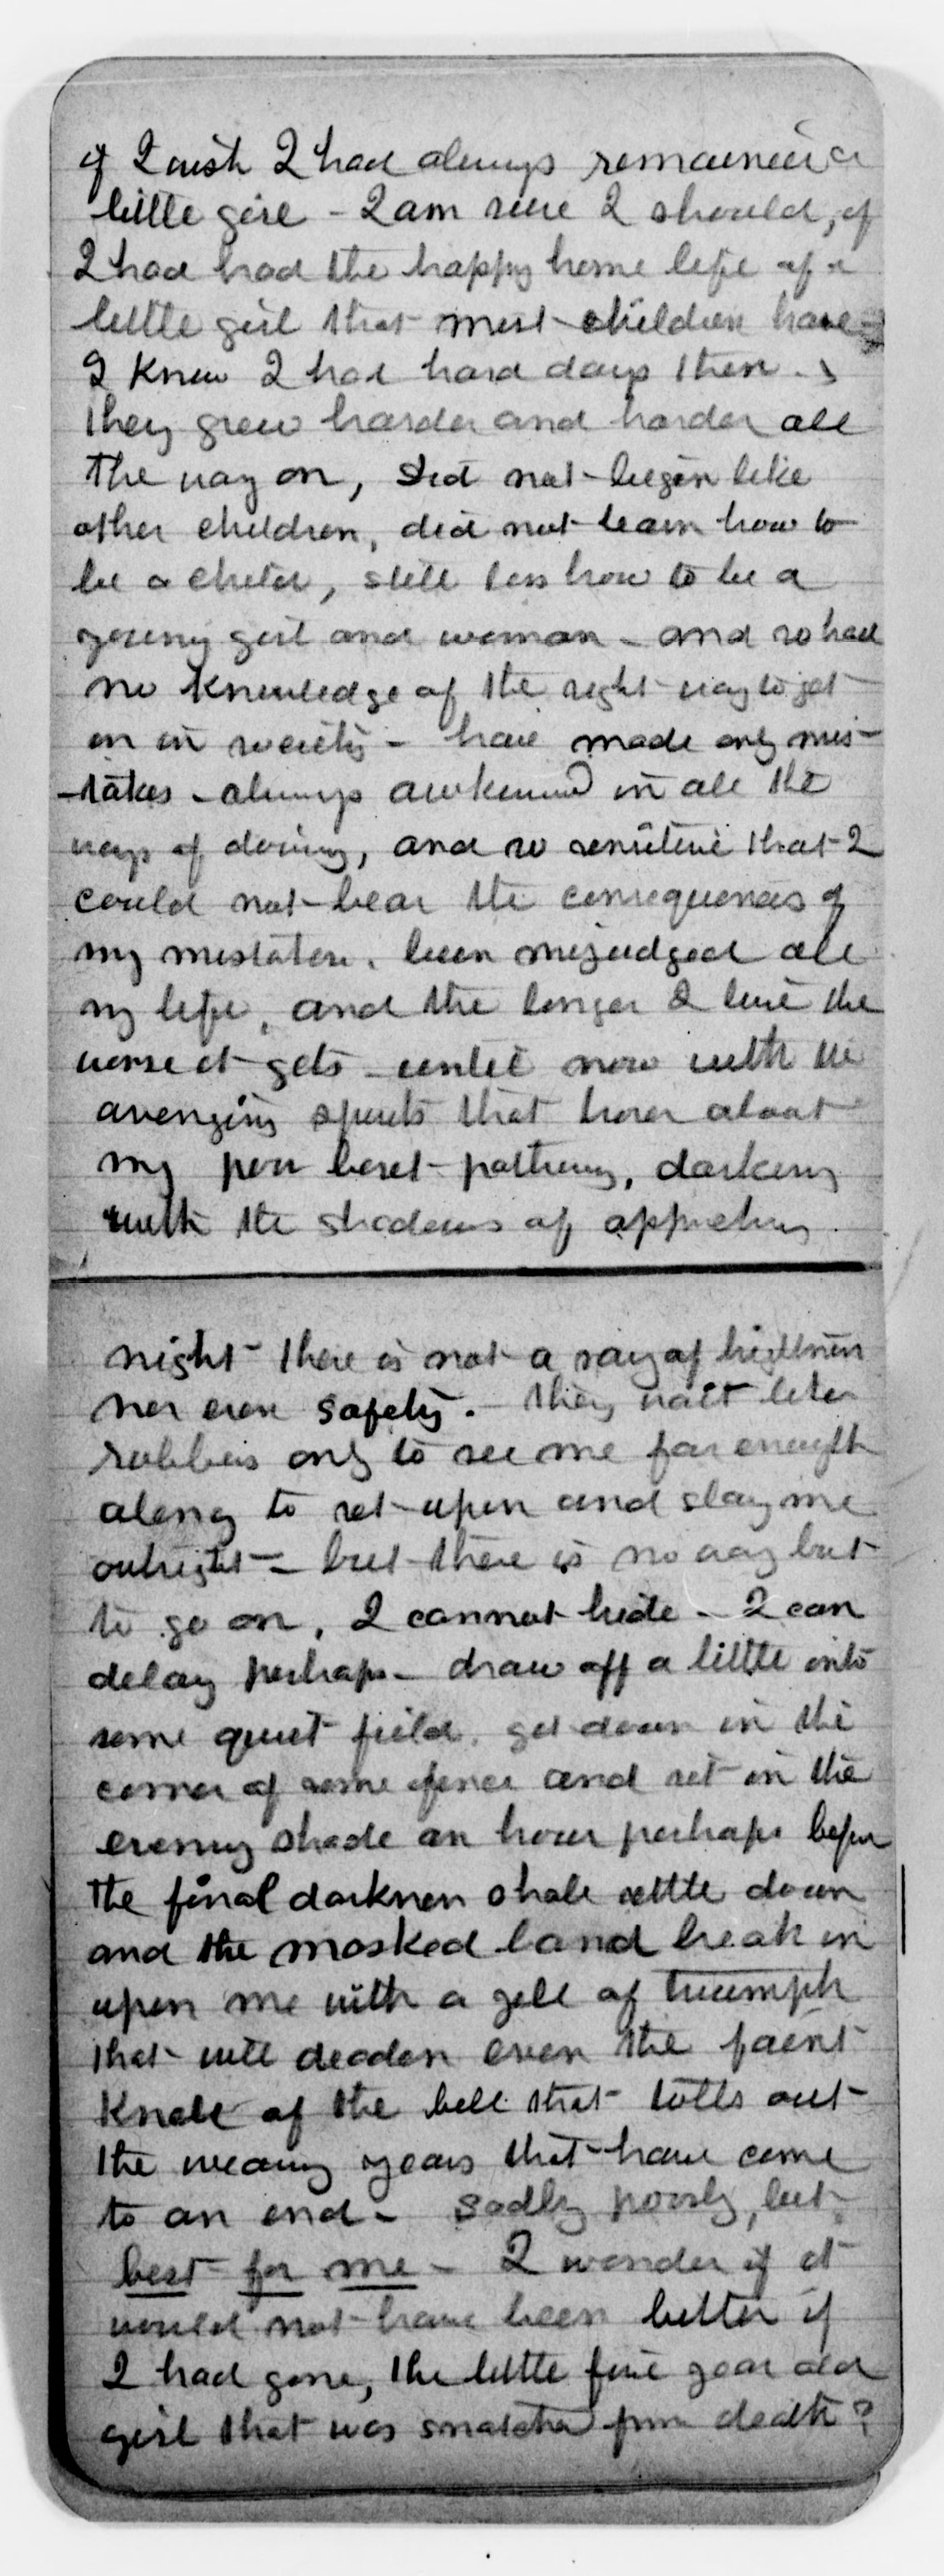 if I wish I had always remained a
little girl - I am sure I should, if
I had had the happy home life of a
little girl that most children have -
I knew I had hard days then - &
they grew harder and harder all
the way on, did not begin like
other children, did not learn how to
be a child, still less how to be a
young girl and woman - and so had
no knowledge of the right way to get
on in society - have made only mis-
-takes - always awkward in all the
ways of doing, and so sensitive that I
could not bear the consequences of
my mistakes. been misjudged all
my life, and the longer I live the
worse it gets - until now with the
avenging spirits that hover about
my poor beset pathway, darkening
with the shadows of approaching
night - there is not a ray of brightness
nor even safety. - they wait like
robbers only to see me far enough
along to set upon and slay me
outright - but there is no way but
to go on, I cannot hide - I can
delay perhaps - draw off a little into
some quiet field, get down in the
corner of some fence and sit in the
evening shade an hour perhaps before
the final darkness shall settle down
and the masked band break in
upon me with a yell of triumph
that will deaden even the faint
knell of the bell that tolls out
the weary years that have come
to an end - sadly poorly, but
best for me - I wonder if it
would not have been better if
I had gone, the little five year old
girl that was snatched from death?